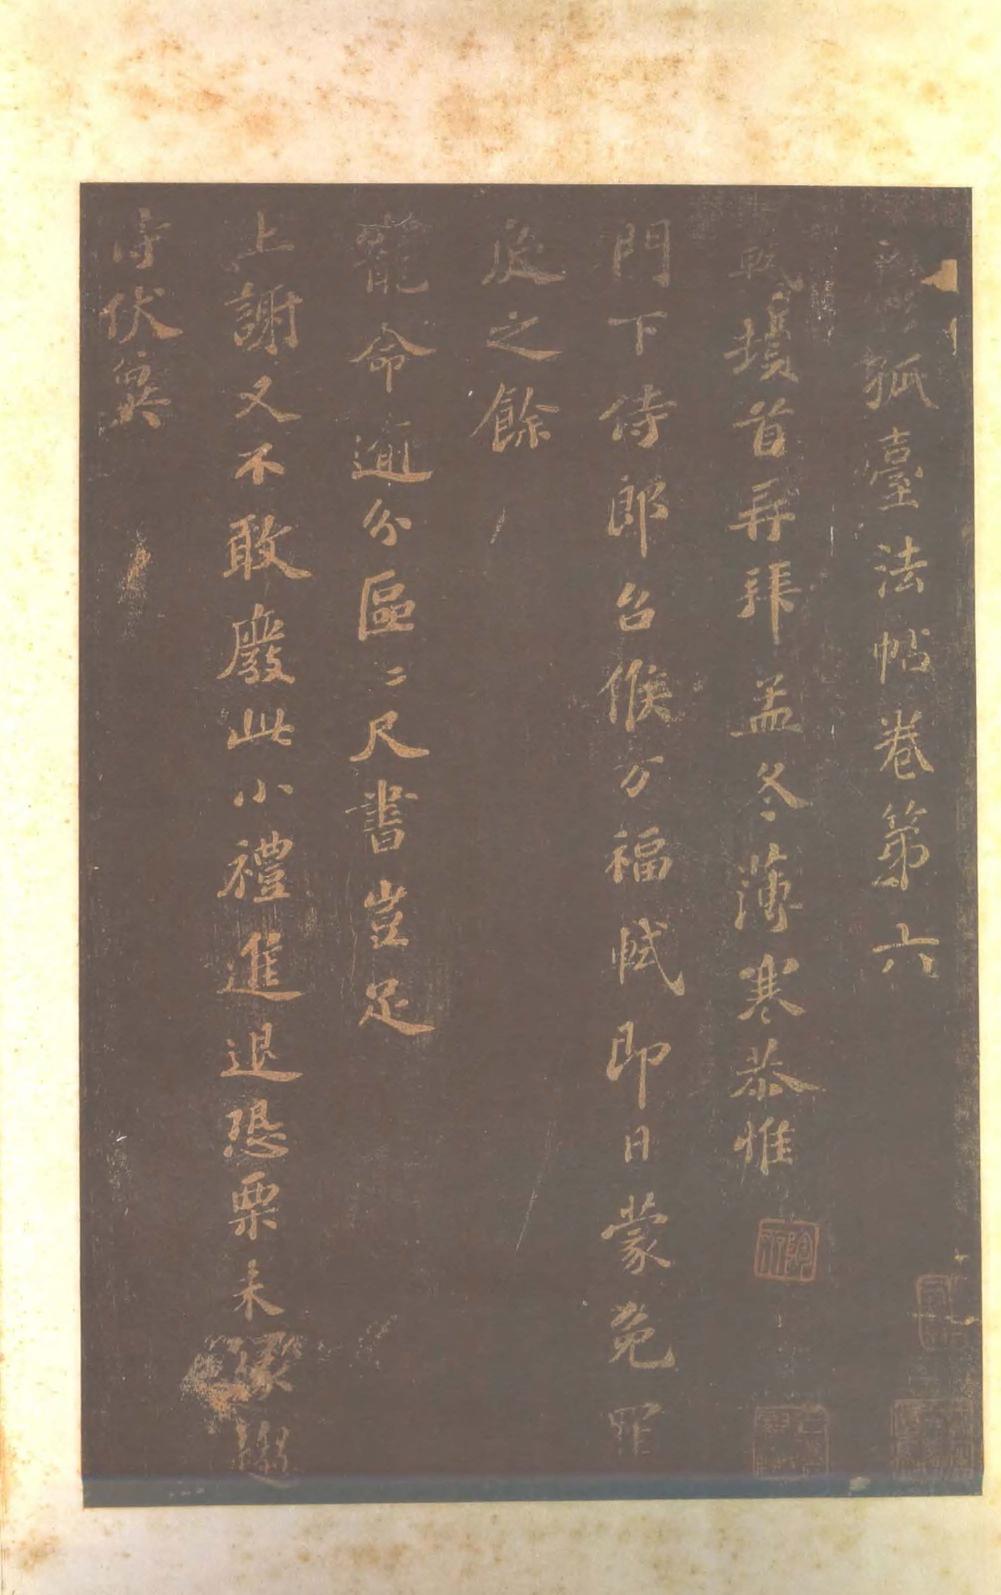 孤臺法帖卷第六
軾頓首再拜孟冬薄寒恭惟
門下侍郎台候万福軾即日蒙免罪
戾之餘
寵命逾分區〻尺書豈足
上謝又不敢廢此小禮進退恐栗未
伏冀